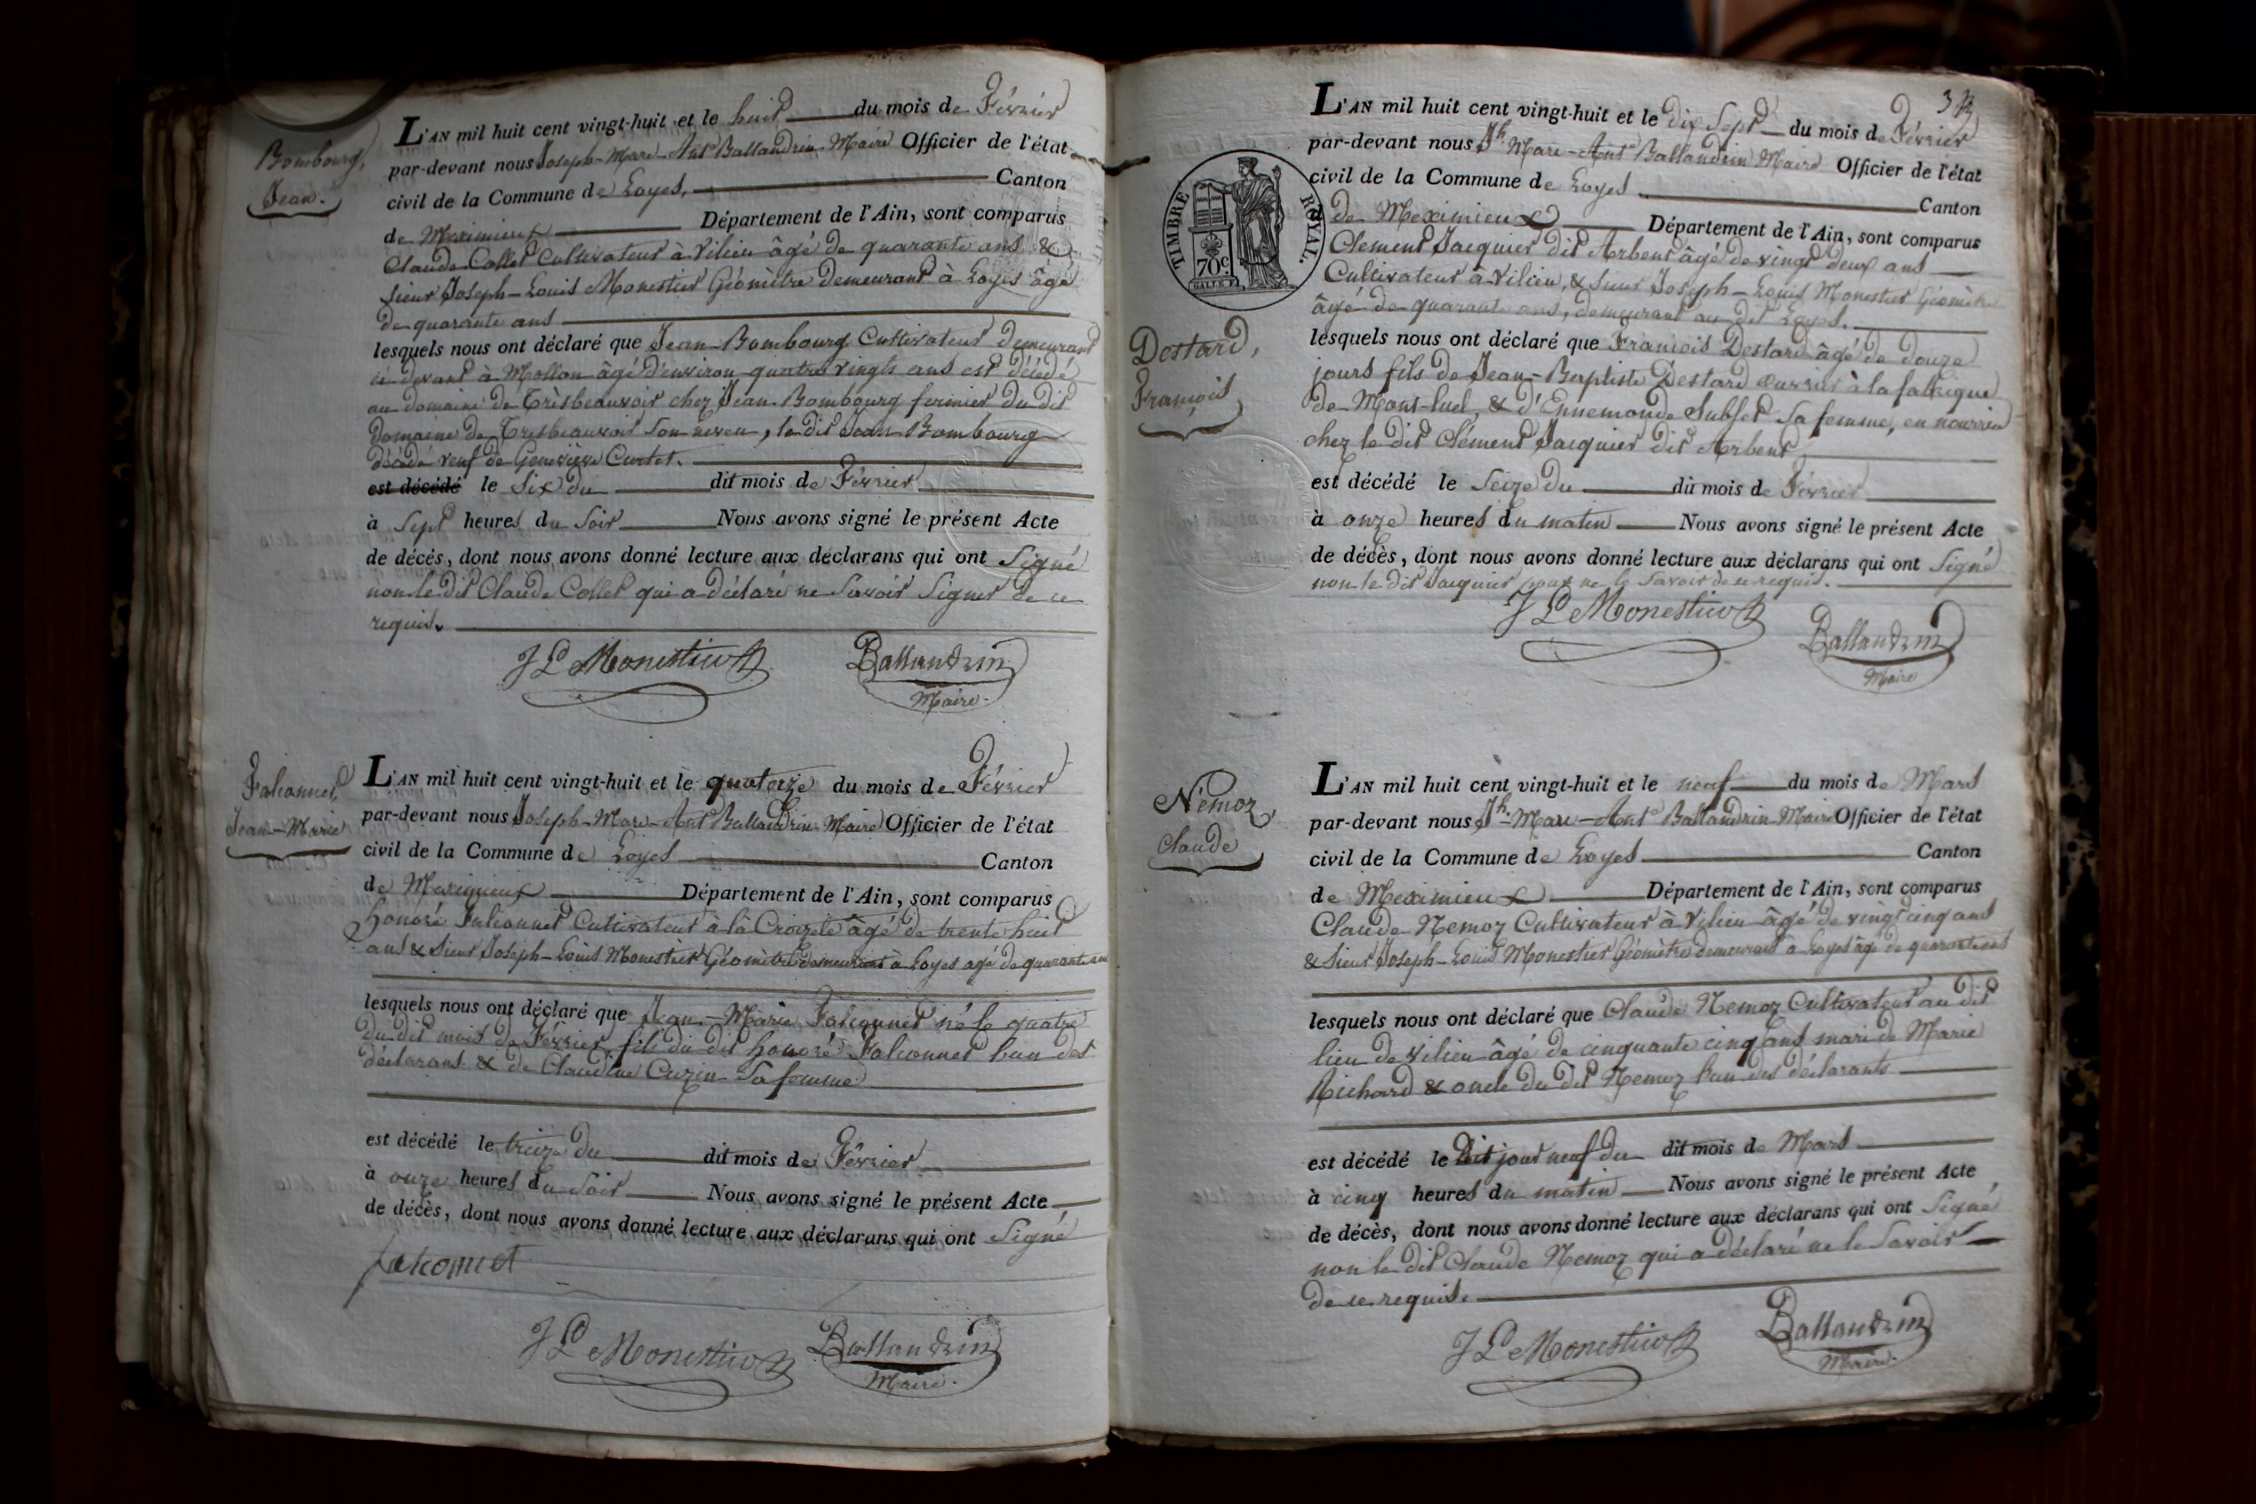 Bombourg,
Jean.
L'AN mil huit cent vingt-huit et le huit du mois de Février
par-devant nous Joseph-Marc-Ant.e Ballandrin Maire Officier de l'état
civil de la Commune de Loyes, Canton
de Meximieux Département de l'Ain, sont comparus
Claude Collet Cultivateur à Vilieu âgé de quarante ans &
sieur Joseph-Louis Monestier Géomètre demeurant à Loyes âgé
de quarante ans
lesquels nous ont déclaré que Jean Bombourg Cultivateur demeurant
ci devant à Mollon âgé d'environ quatre vingts ans est décédé
au domaine de Crèsbeauvoir chez Jean Bombourg fermier du dit
Domaine de Cresbeauvoir son neveu, le dit Jean Bombourg
décédé veuf de Genevieve Curtet.
est décédé le Six du dit mois de Février
à Sept heures du Soir Nous avons signé le présent Acte
de décès, dont nous avons donné lecture aux déclarans qui ont Signé
non le dit Claude Collet qui a déclaré ne Savoir Signer de ce
requis.
J L Monestier
Ballandrin
Maire
Falconnet,
Jean-Marie
L'AN mil huit cent vingt-huit et le quatorze du mois de Février
par-devant nous Joseph-Marc-Ant.e Ballandrin Maire Officier de l'état
civil de la Commune de Loyes Canton
de Meximieux Département de l'Ain, sont comparus
honoré Falconnet Cultivateur à la Croizete âgé de trente huit
ans & Sieur Joseph-Louis Monestier Géomètre demeurant à Loyes agé de quarante ans
lesquels nous ont déclaré que Jean-Marie Falconnet né le quatre
du dit mois de Février, fils du dit honoré Falconnet l'un des
déclarans & de Claudine Cuzin Sa femme
est décédé le treize du dit mois de Février
à onze heures du Soir Nous avons signé le présent Acte
de décès, dont nous avons donné lecture aux déclarans qui ont Signé
falconnet
J L Monestier
Ballandrin
Maire
3
L'AN mil huit cent vingt-huit et le dix Sept du mois de Février
par-devant nous Jh. Marc-Ant.e Ballandrin Maire Officier de l'état
civil de la Commune de Loyes Canton
de Meximieux Département de l'Ain, sont comparus
TIMBRE ROYAL.
70 c.
Clement Jacquier dit Arbent âgé de vingt deux ans
Cultivateur à Vilieu, & Sieur Joseph-Louis Monestier Géomètre
âgé de quarante ans, demeurant au dit Loyes.
Destard,
François
lesquels nous ont déclaré que François Destard âgé de douze
jours fils de Jean-Baptiste Destard ouvrier à la fabrique
de Mont-luel, & d'Ennemonde Sublet Sa femme, en nourrice
chez le dit Clément Jacquier dit Arbent
est décédé le Seize du dit mois de Février
à onze heures du matin Nous avons signé le présent Acte
de décès, dont nous avons donné lecture aux déclarans qui ont Signé
non le dit Jacquier pour ne le Savoir de ce requis.
J L Monestier
Ballandrin
Maire
Némoz,
Claude
L'AN mil huit cent vingt-huit et le neuf du mois de Mars
par-devant nous Jh.-Marc-Ant.e Ballandrin Maire Officier de l'état
civil de la Commune de Loyes Canton
de Meximieux Département de l'Ain, sont comparus
Claude Nemoz Cultivateur à Vilieu âgé de vingt cinq ans
& Sieur Joseph-Louis Monestier Géomètre demeurant à Loyes âgé de quarante ans
lesquels nous ont déclaré que Claude Nemoz Cultivateur au dit
lieu de Vilieu âgé de cinquante cinq ans mari de Marie
Richard & oncle du dit Nemoz l'un des déclarants
est décédé le dit jour neuf du dit mois de Mars
à cinq heures du matin Nous avons signé le présent Acte
de décès, dont nous avons donné lecture aux déclarans qui ont Signé
non le dit Claude Nemoz qui a déclaré ne le Savoir
de ce requis.
J L Monestier
Ballandrin
Maire